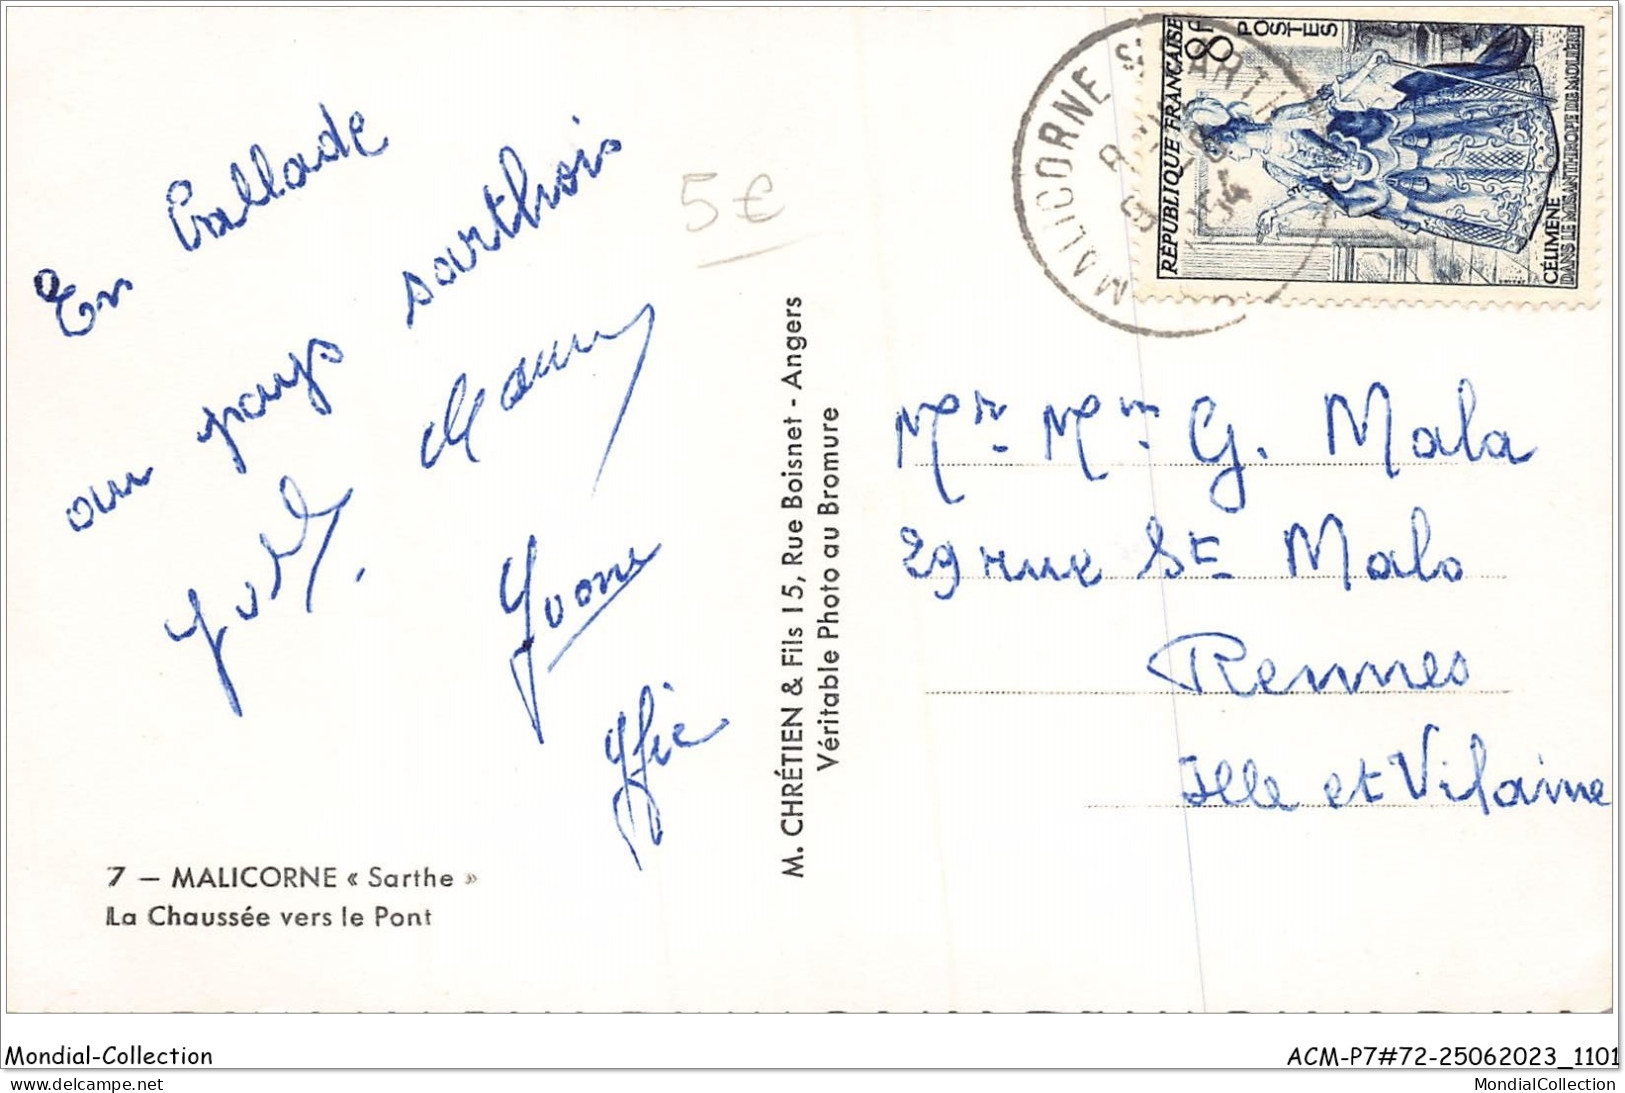 En ballade
au pays sarthois
Yvonne
5€
7 — MALICORNE « Sarthe »
La Chaussée vers le Pont
M. CHRÉTIEN & Fils 15, Rue Boisnet - Angers
Véritable Photo au Bromure
MALICORNE S/SARTHE
RÉPUBLIQUE FRANÇAISE
8F
POSTES
CÉLIMÈNE
DANS LE MISANTHROPE DE MOLIÈRE
Mr. Mme. G. Mala
29 rue St Malo
Rennes
Ille et Vilaine
Mondial-Collection
ACM-P7#72-25062023_1101
MondialCollection.net
MondialCollection